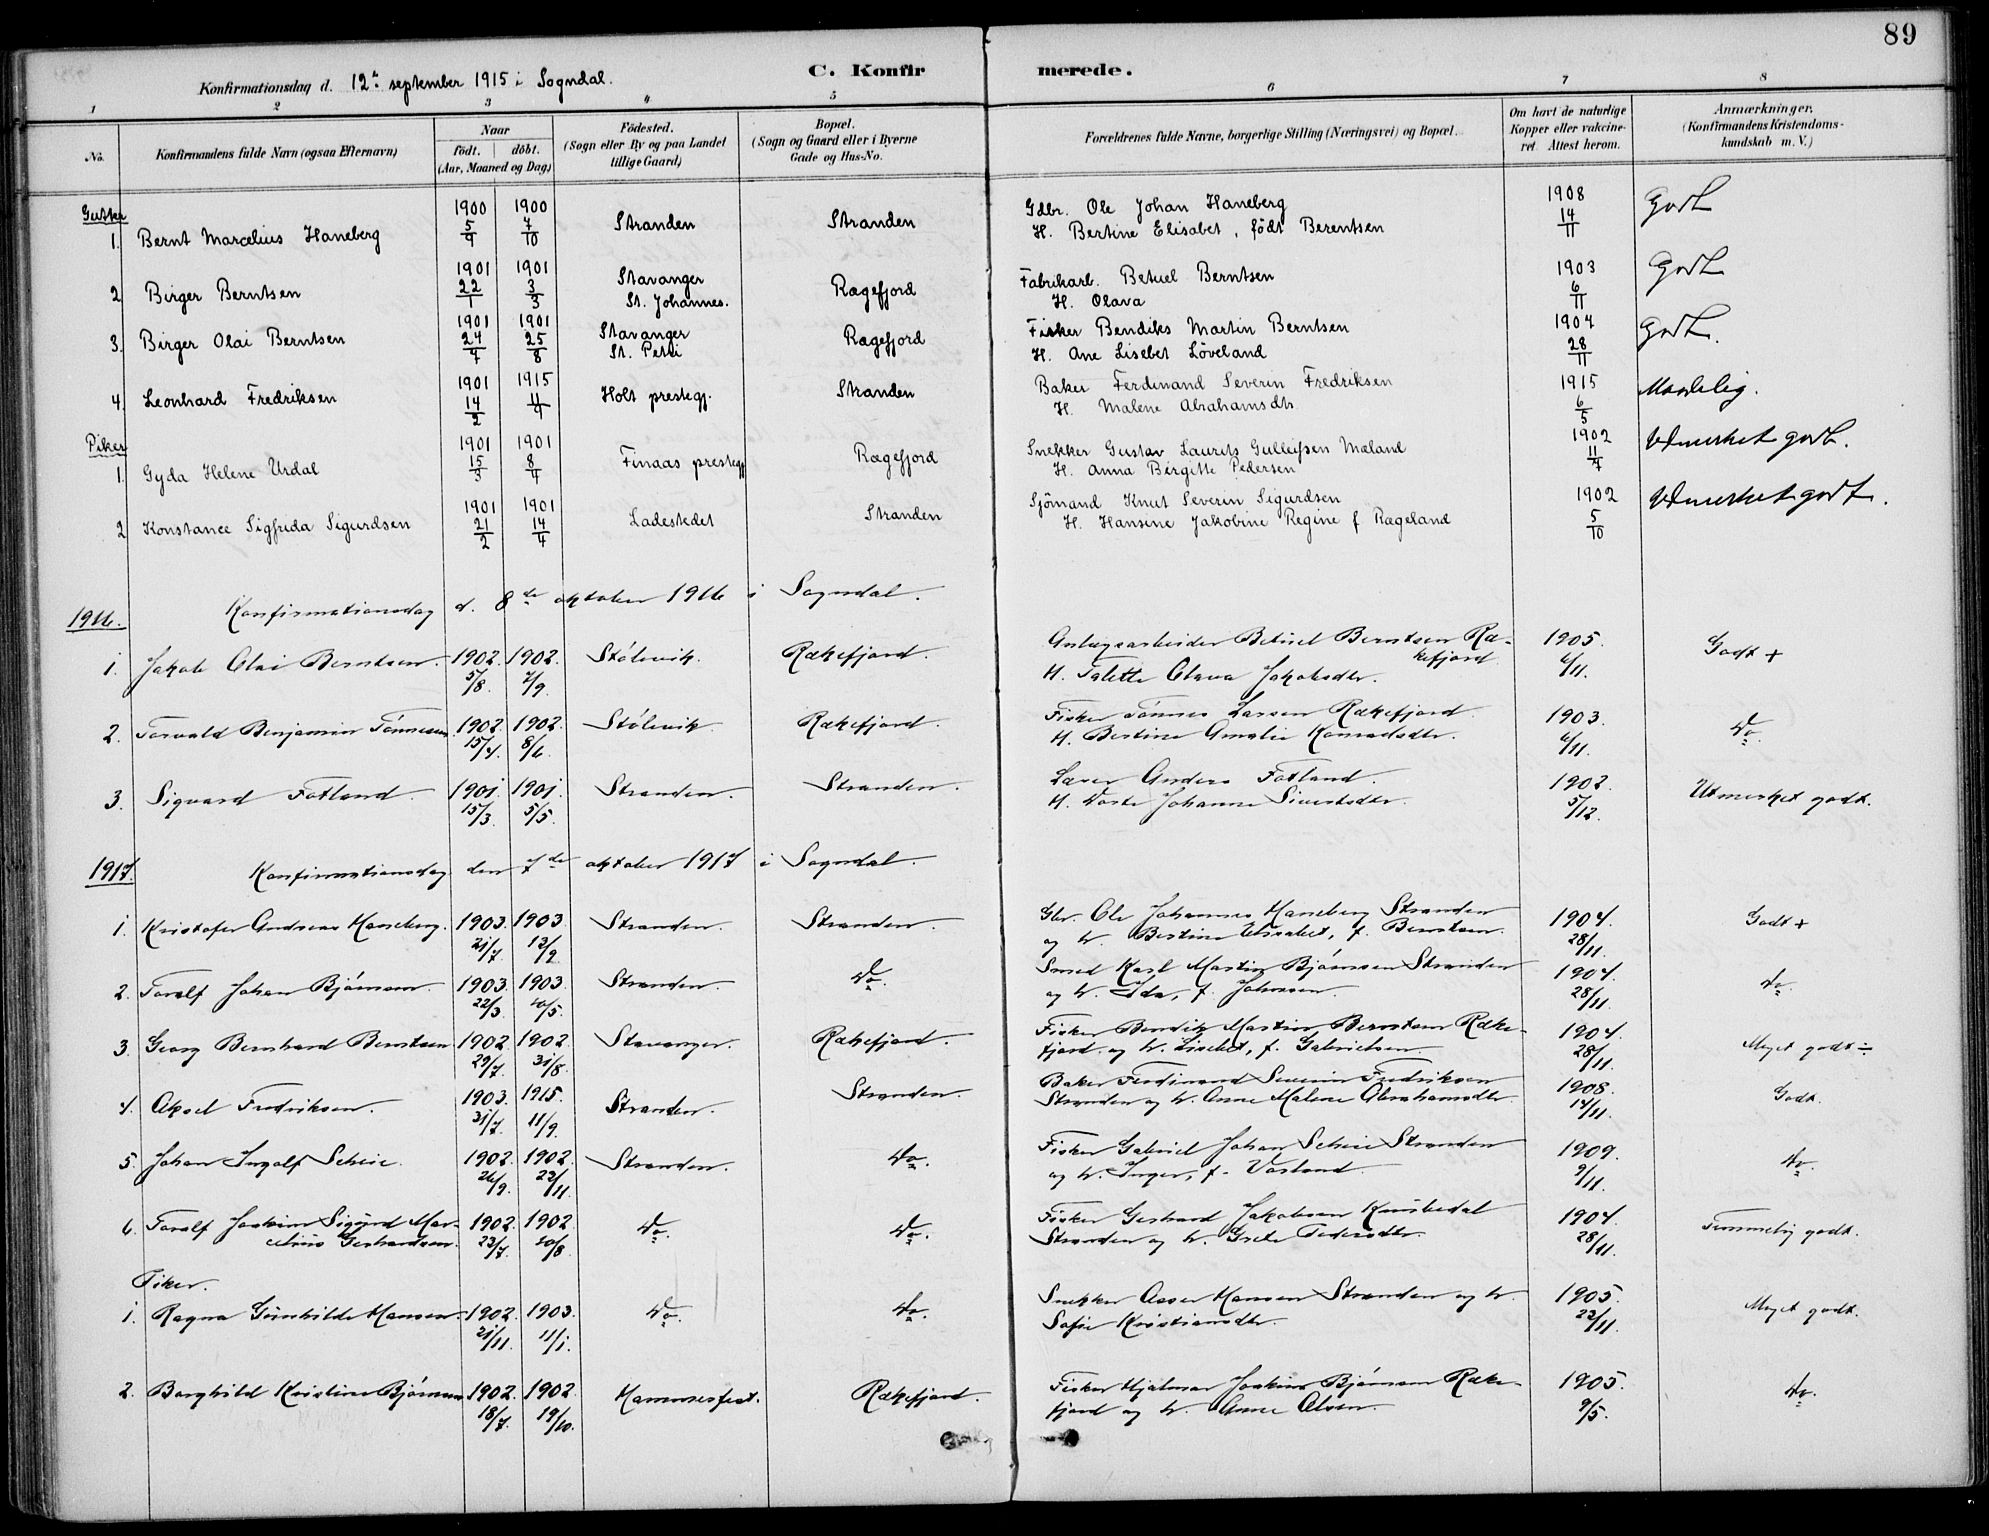 89
C. Konfirmerede.
Konfirmationsdag d. 12te september 1915 i Sogndal.
1 2 3 4 5 6 7 8
No. Konfirmandens fulde Navn (ogsaa Efternavn) Naar født. døbt. (Aar, Maaned og Dag) Fødested. (Sogn eller By og paa Landet tillige Gaard) Bopæl. (Sogn og Gaard eller i Byerne Gade og Hus-No. Forældrenes fulde Navne, borgerlige Stilling (Næringsvei) og Bopæl. Om havt de naturlige Kopper eller vakcineret. Attest herom. Anmærkninger. (Konfirmandens Kristendomskundskab m. V.)
Gutter
1. Bernt Marcelius Haneberg 1900 5/9 1900 7/10 Stranden Stranden Gdbr. Ole Johan Haneberg H. Bertine Elisabet, født Berentsen 1908 14/11 Godt
2 Birger Berntsen 1901 22/1 1901 3/3 Stavanger St. Johannes. Rægefjord Fabrikarb. Betuel Berntsen H. Olava 1903 6/11 Godt
3. Birger Olai Berntsen 1901 24/7 1901 25/8 Stavanger St. Petri Rægefjord Fisker Bendiks Martin Berntsen H. Ane Lisebet Löveland 1904 28/11 Godt.
4. Leonhard Fredriksen 1901 14/2 1915 Holt prestegj. Stranden Baker Ferdinand Severin Fredriksen H. Malene Abrahamsdtr. 1915 6/5 Maadelig.
Piker
1. Gyda Helene Urdal 1901 15/3 1901 8/4 Finaas prestegj Rægefjord Snekker Gustav Laurits Gulleifsen Maland H. Anna Birgitte Pedersen 1902 11/7 Udmerket godt.
2 Konstance Sigfrida Sigurdsen 1901 21/2 1901 14/4 Ladestedet Stranden Sjömand Knut Severin Sigurdsen H. Hansine Jakobine Regine f Rægeland 1902 5/10 Udmerket godt.
1916. Konfirmationsdag d. 8de oktober 1916 i Sogndal.
1. Jakob Olai Berntsen. 1902. 5/8. 1902. 7/9. Stólevik. Rækefjord. Anlægsarbeider Betuel Berntsen Rækefjord H. Talette Olava Jakobsdtr. 1905. 6/11. Godt +
2. Torvald Benjamin Tönnesen 1902. 15/4. 1902. 8/6. Stólevik Rækefjord. Fisker Tönnes Larsen Rækefjord H. Bertine Amalie Konradsdtr. 1903. 6/11. Do.
3. Sigvard Fotland. 1901. 15/3. 1901. 5/5. Stranden. Stranden. Lærer Anders Fotland. H. Dorte Johanne Sivertsdtr. 1902. 5/12. Utmerket godt.
1917. Konfirmationsdag den 7de oktober 1917 i Sogndal.
1. Kristofer Andreas Haneberg. 1903. 21/7. 1903. 13/9. Stranden. Stranden. Gbr. Ole Johannes Haneberg Stranden og h. Bertine Elisabet, f. Berntsen. 1904. 28/11. Godt +
2. Toralf Johan Bjórnsen. 1903. 22/3. 1903. 20/5. Stranden. Do. Smed Karl Martin Bjórnsen Stranden og h. Ida, f. Johnsen. 1904. 28/11. Do.
3. Georg Bernhard Berntsen 1902. 29/7. 1902 31/8. Stavanger. Rækefjord. Fisker Bendik Martin Berntsen Rækefjord og h. Lisebet, f. Gabrielsen 1904. 28/11. Meget godt ÷
4. Aksel Fredriksen. 1903. 31/7. 1915. 11/9. Stranden. Stranden. Baker Ferdinand Severin Fredriksen Stranden og h. Anne Malene Abrahamsdtr. 1908. 14/11. Godt.
5. Johan Ingolf Scheie. 1902. 26/9. 1902. 23/11. Stranden. Do. Fisker Gabriel Johan Scheie Stranden og h. Inger, f. 1909. 9/11. Do.
6. Toralf Joakim Sigurd Marcelius Gerhardsen. 1902. 23/7. 1902 20/8. Do. Do. Fisker Gerhard Jakobsen Stranden og h. Grete Pedersdtr. 1904. 28/11. Temmelig godt.
Piker.
1. Ragna Gunhilde Hansen. 1902. 21/11. 1903. 11/1. Do. Do. Snekker Asser Hansen Stranden og h. Sofie Kristiansdtr. 1905. 22/11. Meget godt.
2. Borghild Kristine Bjórnsen 1902. 18/7. 1902 19/10. Hammerfest. Rækefjord. Fisker Hjalmar Joakim Bjórnsen Rækefjord og h. Anne Olsen. 1905. 9/5. Do.